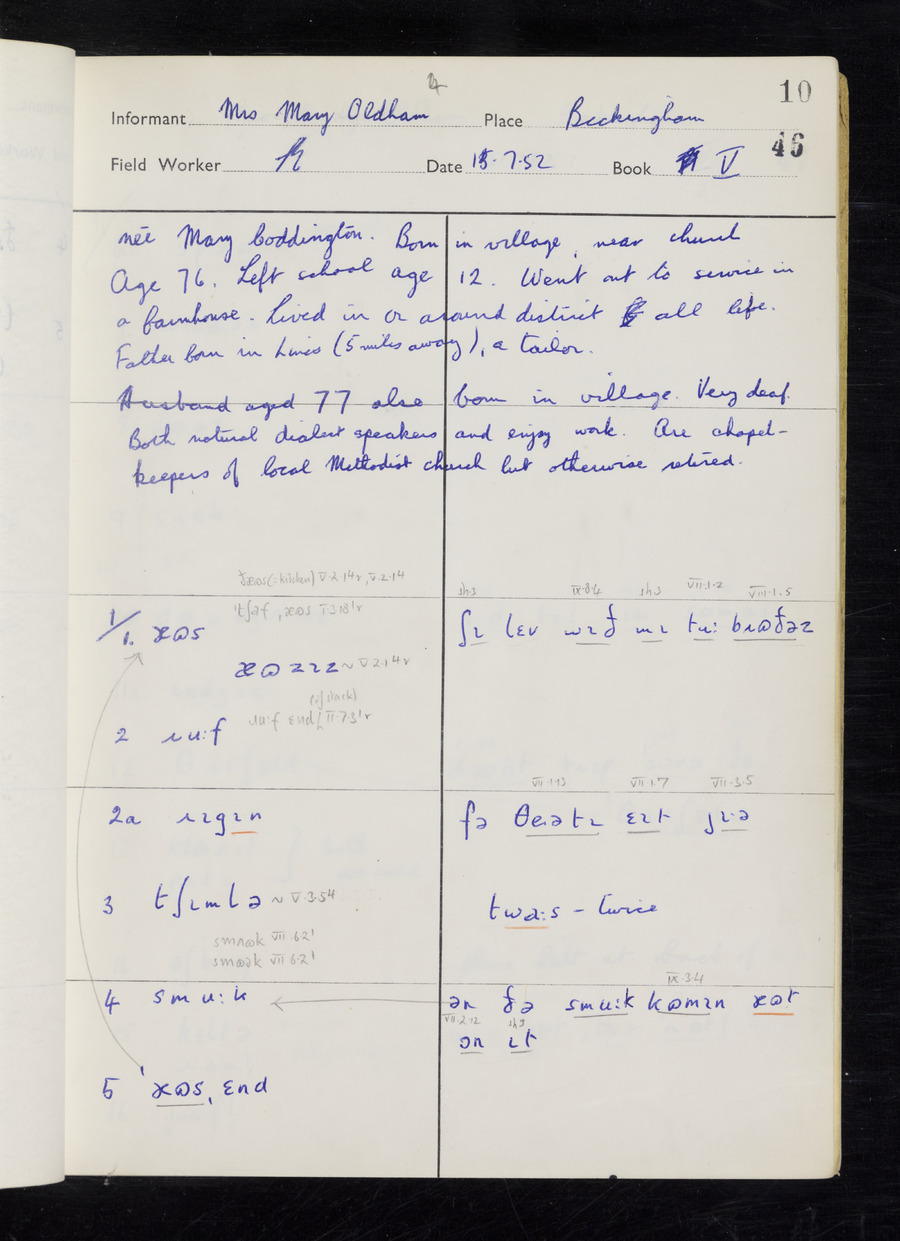 10
Informant Mrs Mary Oldham Place Beckingham
46
Field Worker Date 15·7·52 Book V
née Mary Coddington. Born in village, near church
Age 76. Left school age 12. Went out to service in
a farmhouse. Lived in or around district all life.
Father born in Lincs (5 miles away), a tailor.
Husband aged 77 also born in village. Very deaf.
Both natural dialect speakers and enjoy work. Are chapel-
keepers of local Methodist church but otherwise retired.
ðæʊs (= kitchen) V·2·14r, V·2·14
sh3 IX·8·4 sh3 VII·1·2 VIII·1·5
1/1. æʊs
ʃɪ lɛv wɪð mɪ tu: bɹʊðəz
æʊzɪz ~ V·2·14r
(of stack)
ɹu:f ɛnd II·7·3'r
2 ɹu:f
VII·1·13 VII·1·7 VII·3·5
2a ɹɪgɪn
fə θeətɪ ɛɪt jɪ·ə
3 tʃɪmlə ~ V·3·54
twa:s – twice
smʊək VII·6·2'
IX·3·4
4 smu:k
ən ðə smu:k kʊmɪn æʊt
VII·2·12 sh3
ən ɪt
5 'æʊs, ɛnd